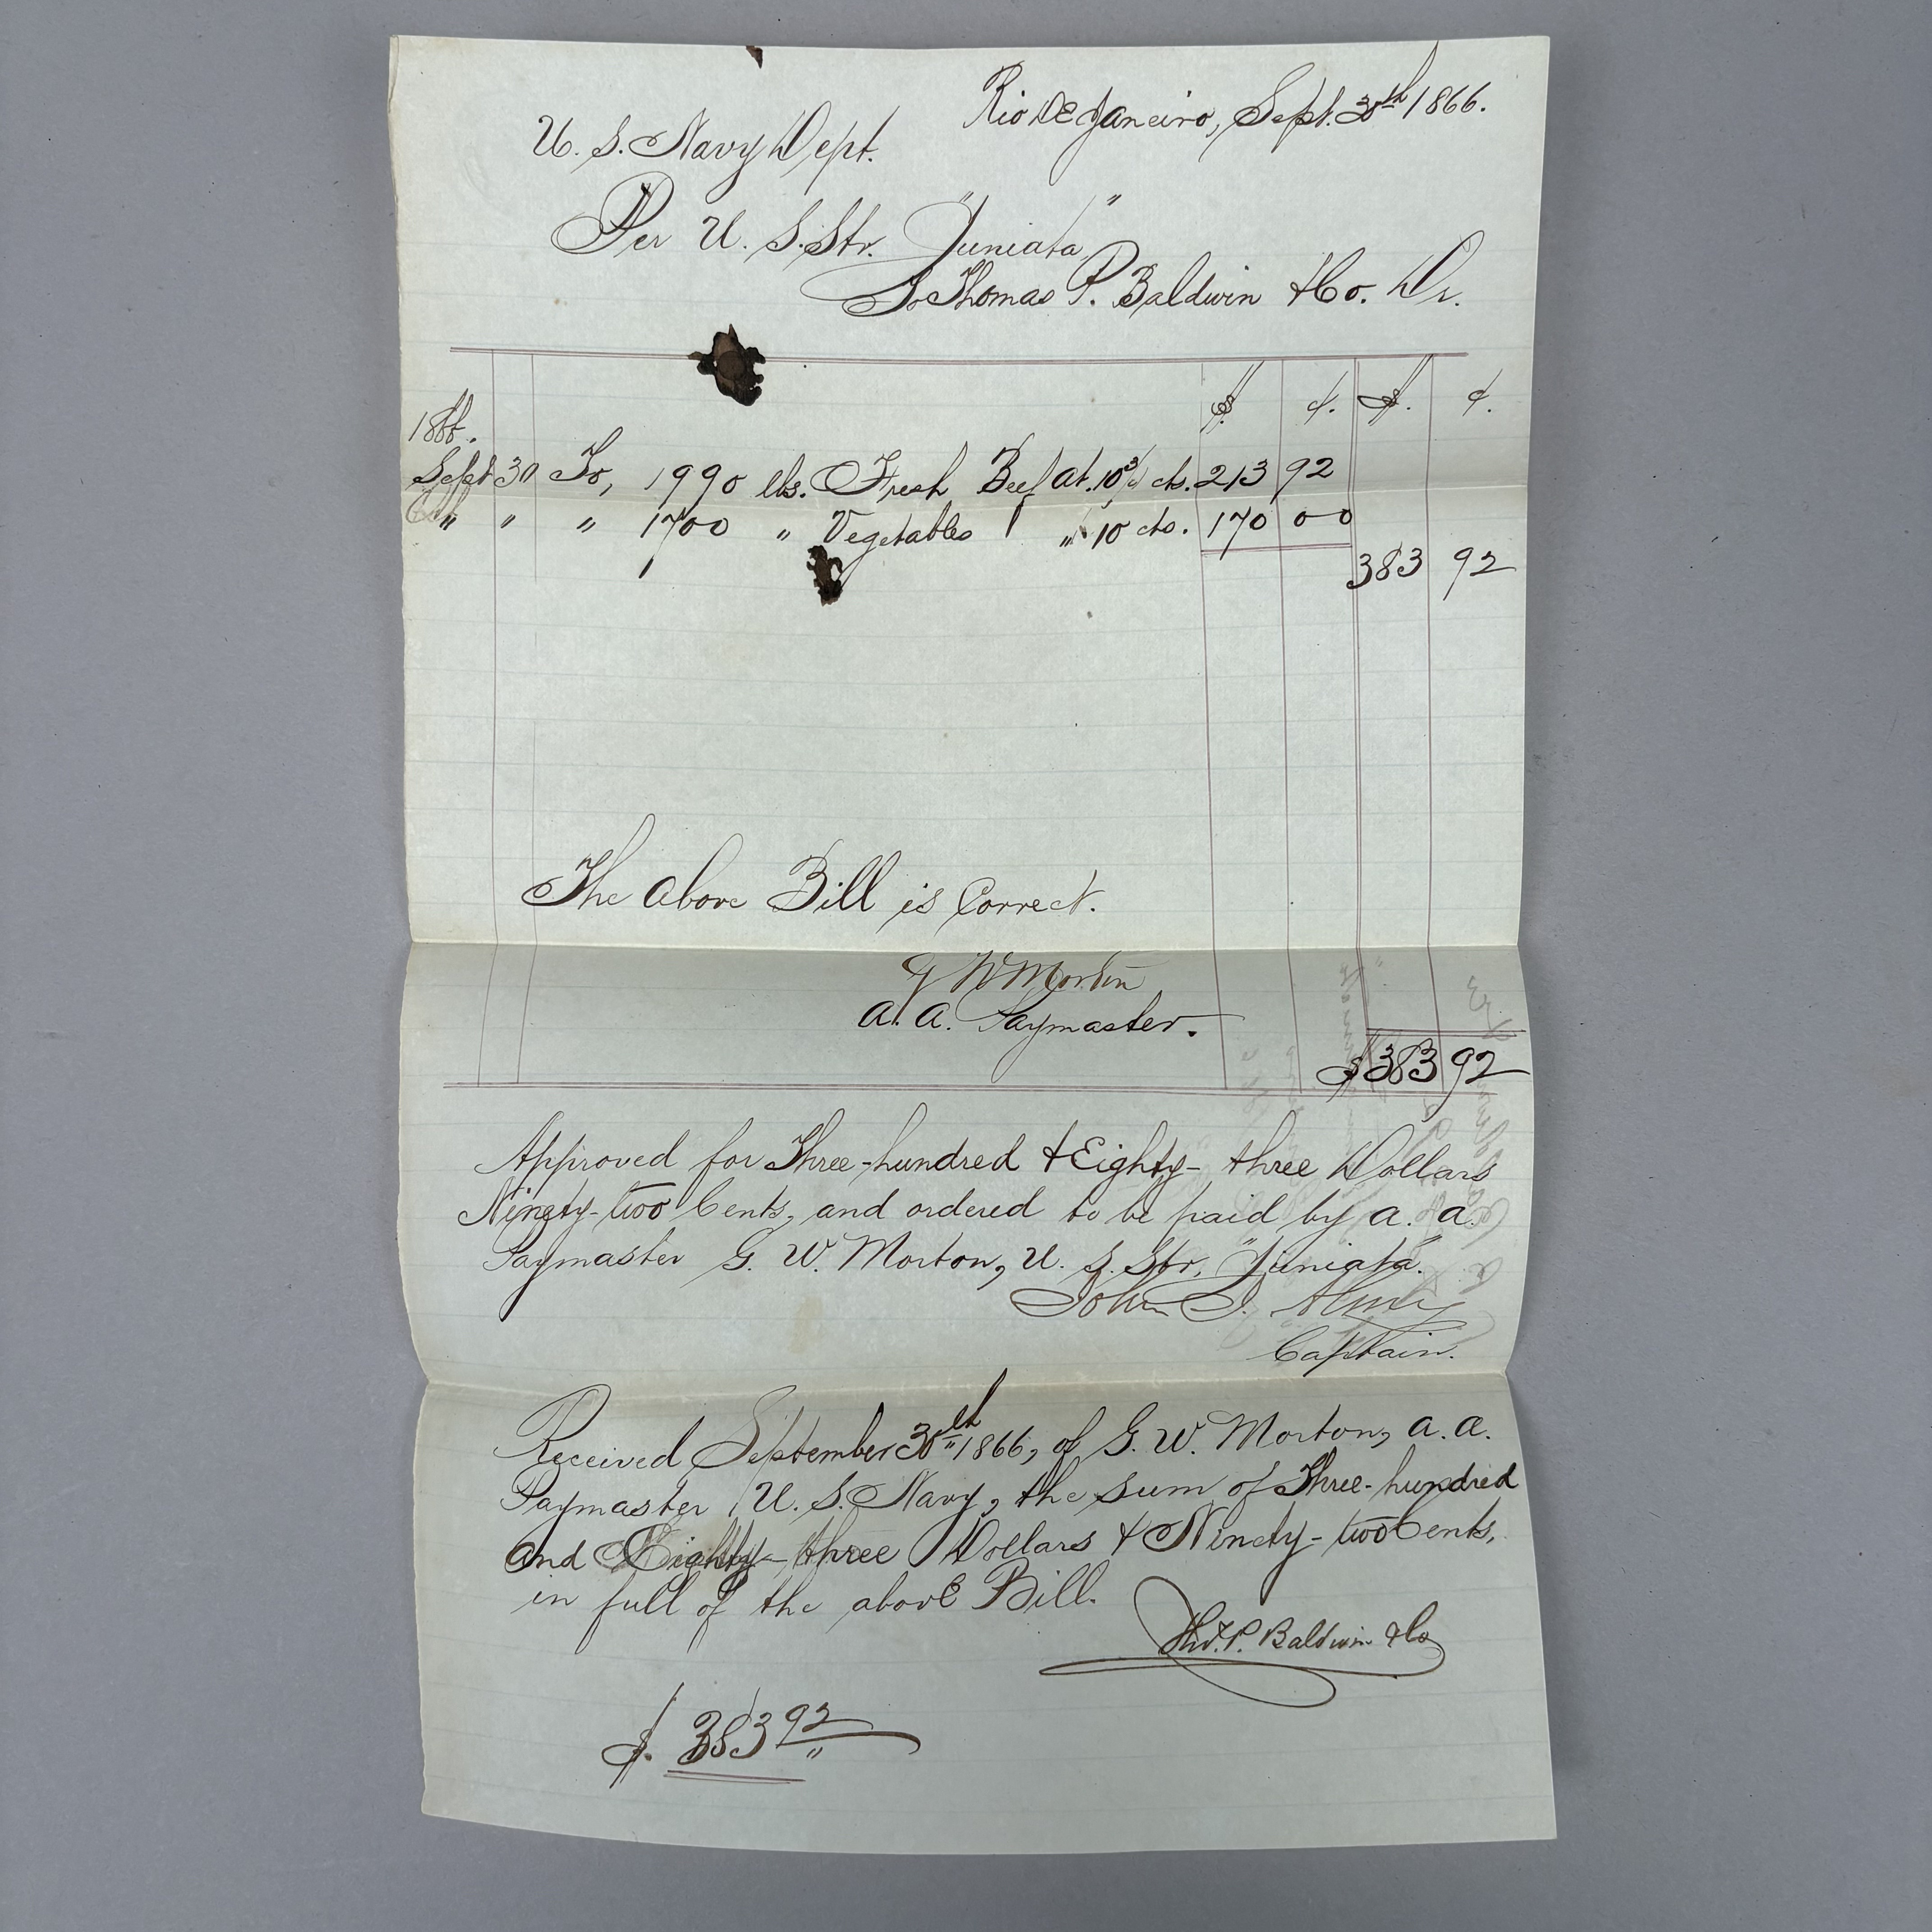 Rio De Janeiro, Sept. 30th 1866.
U. S. Navy Dept.
Per U. S. Str. "Juniata"
To Thomas P. Baldwin & Co. Dr.
$. ¢. $. ¢.
1866.
Sept 30 To, 1990 lbs. Fresh Beef at. 10 3/4 cts. 213 92
" " " 1700 " Vegetables " 10 cts. 170 00
383 92
The above Bill is Correct.
G W Morton
A. A. Paymaster.
$383 92
Approved for Three-hundred & Eighty-three Dollars
Ninety-two Cents, and ordered to be paid by A. A.
Paymaster G. W. Morton, U. S. Str. "Juniata".
John J. Almy
Captain.
Received September 30th 1866, of G. W. Morton, A. A.
Paymaster U. S. Navy, the sum of Three-hundred
and Eighty-three Dollars & Ninety-two Cents,
in full of the above Bill.
Thos. P. Baldwin & Co
$. 383 92